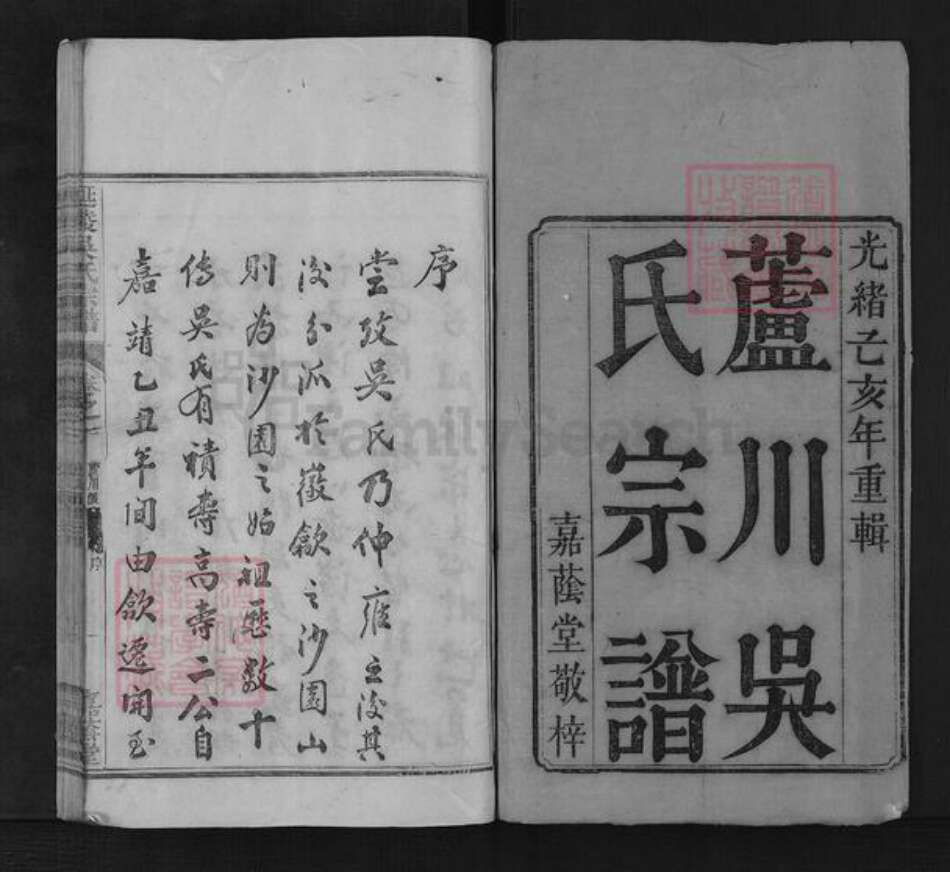 光緒乙亥年重輯
蘆川吳
氏宗譜
嘉蔭堂敬梓
序
嘗攷吳氏乃仲雍之後其
後分派於徽歙之沙園山
則為沙園之始祖歷數十
傳吳氏有積壽高壽二公自
嘉靖乙丑年间由歙遷開至
延陵吳氏宗譜
FamilySearch